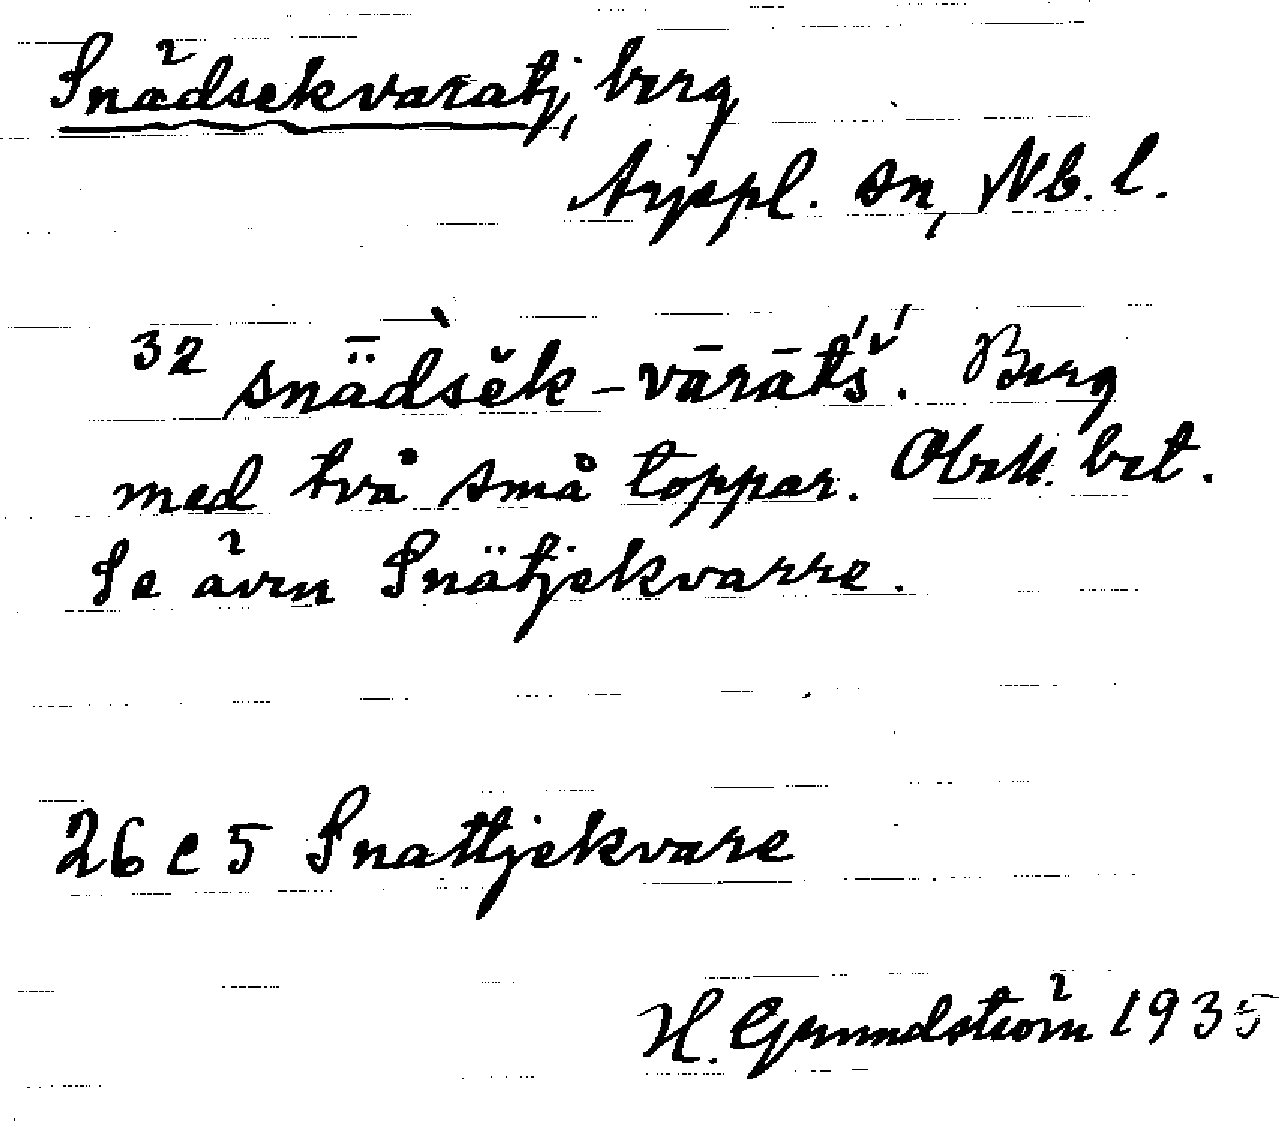 Snädsekvaratj, berg
Arjepl. sn, Nb. l.
32 snǟdsĕk-vārāt́š́. Berg
med två små toppar. Obek. bet.
Se även Snätjekvarre.
26 c 5 Snattjekvare
H. Grundström 1935